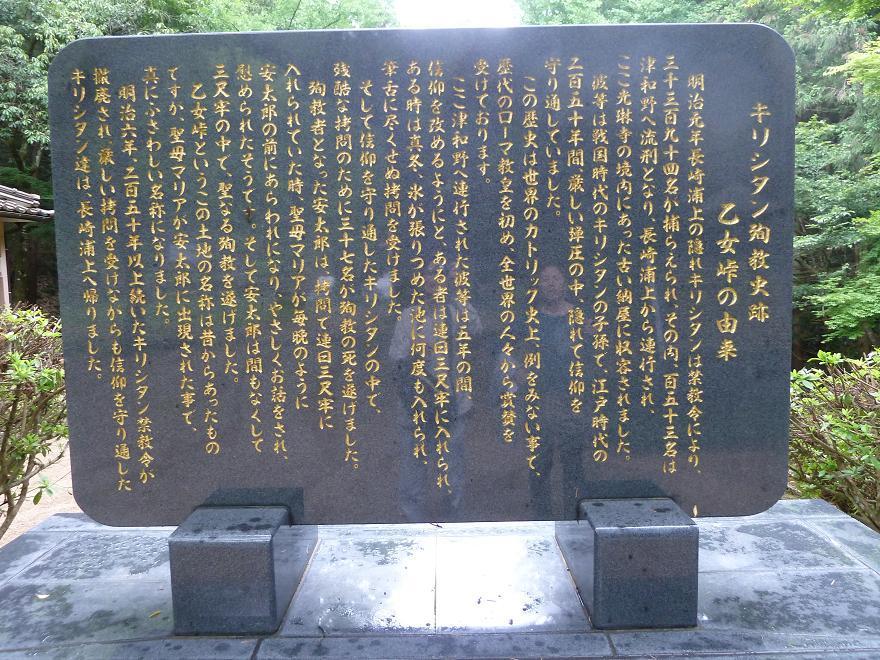 キリシタン殉教史跡
乙女峠の由来
明治元年長崎浦上の隠れキリシタンは禁教令により、
三千三百九十四名が捕らえられ、その内、百五十三名は
津和野へ流刑となり、長崎浦上から連行され、
ここ光琳寺の境内にあった古い納屋に収容されました。
彼等は戦国時代のキリシタンの子孫で、江戸時代の
二百五十年間、厳しい弾圧の中、隠れて信仰を
守り通していました。
この歴史は世界のカトリック史上、例をみない事で、
歴代のローマ教皇を初め、全世界の人々から賞賛を
受けております。
ここ津和野へ連行された彼等は五年の間、
信仰を改めるようにと、ある者は連日三尺牢に入れられ、
ある時は真冬、氷が張りつめた池に何度も入れられ、
筆舌に尽くせぬ拷問を受けました。
そして信仰を守り通したキリシタンの中で、
残酷な拷問のために三十七名が殉教の死を遂げました。
殉教者となった安太郎は、拷問で連日三尺牢に
入れられていた時、聖母マリアが毎晩のように
安太郎の前にあらわれになり、やさしくお話をされ、
慰められたそうです。そして安太郎は間もなくして
三尺牢の中で、聖なる殉教を遂げました。
乙女峠というこの土地の名称は昔からあったもの
ですが、聖母マリアが安太郎に出現された事で、
真にふさわしい名称になりました。
明治六年、二百五十年以上続いたキリシタン禁教令が
撤廃され、厳しい拷問を受けながらも信仰を守り通した
キリシタン達は、長崎浦上へ帰りました。